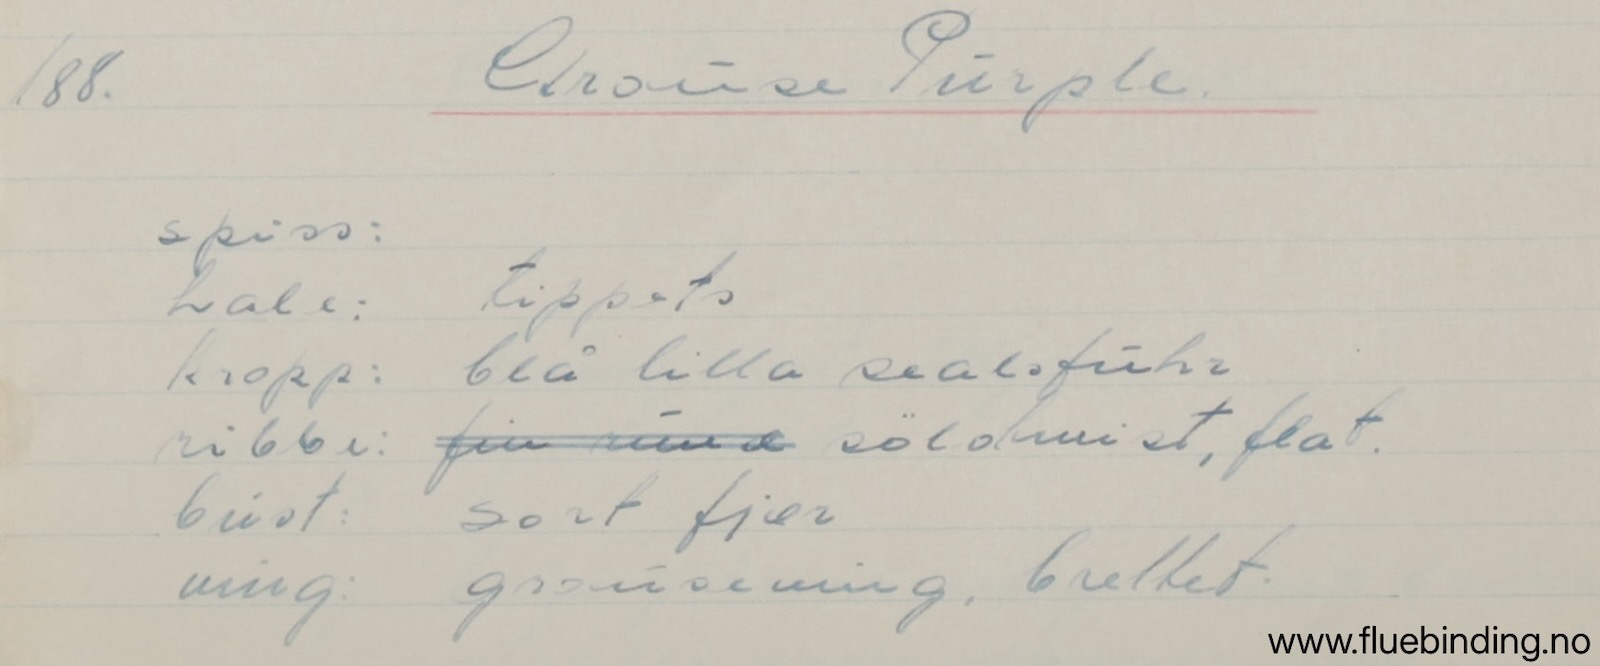 188. Grouse Purple.
spiss:
hale: tippets
kropp: blå lilla sealsfuhr
ribbe: fin rund söldtwist, flat.
bust: sort fjær
wing: grousewing, brettet.
www.fluebinding.no